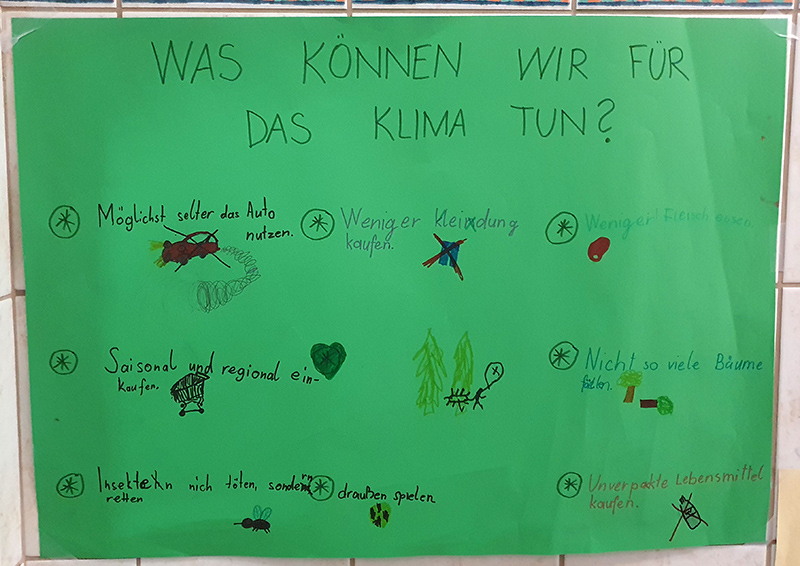 WAS KÖNNEN WIR FÜR
DAS KLIMA TUN?
Möglichst selter das Auto
nutzen.
Weniger Kleindung
kaufen.
Weniger Fleisch essen.
Saisonal und regional ein-
kaufen.
Nicht so viele Bäume
fällen.
Insekten nich töten, sondern
retten
draußen spielen
Unverpakte Lebensmittel
kaufen.